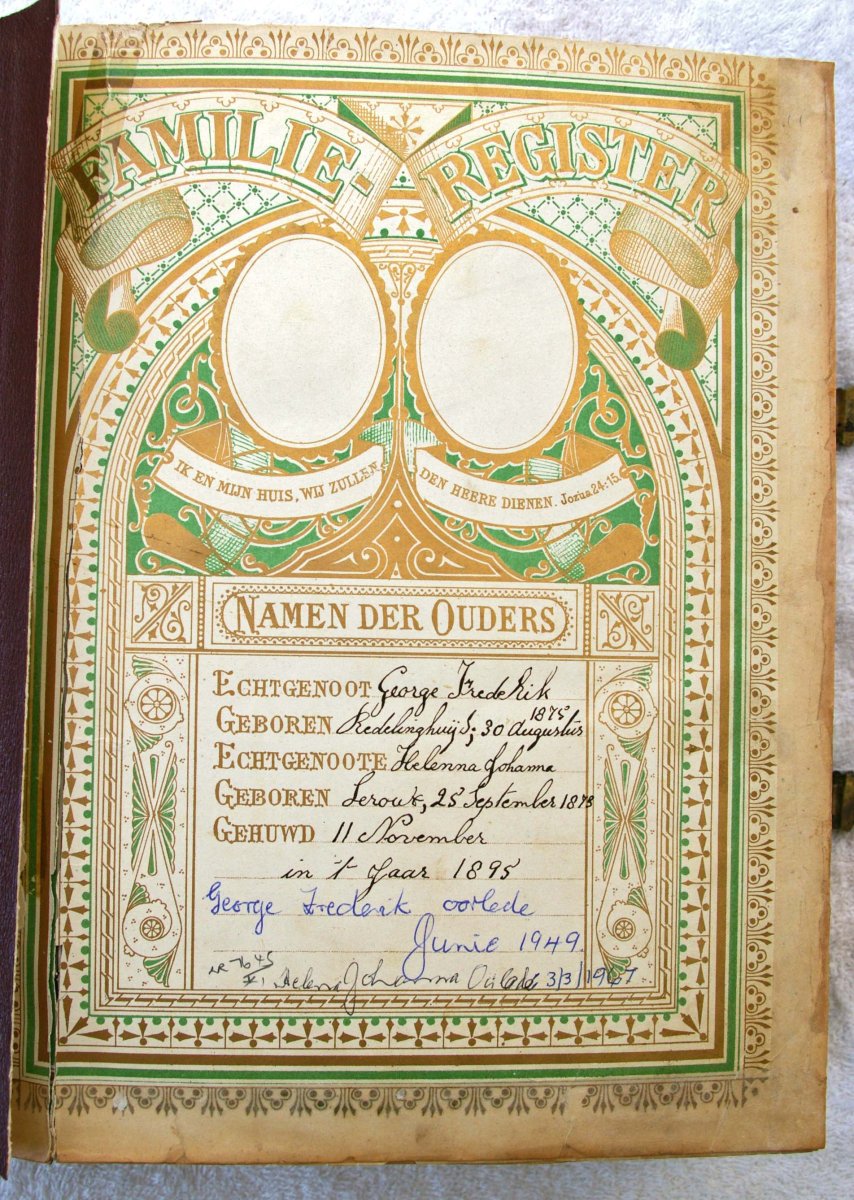 FAMILIE-REGISTER
IK EN MIJN HUIS, WIJ ZULLEN DEN HEERE DIENEN. Jozua 24:15.
NAMEN DER OUDERS
ECHTGENOOT George Frederik
1875
GEBOREN Redelinghuijs; 30 Augustus
ECHTGENOOTE Helenna Johanna
GEBOREN Leroux, 25 September 1878
GEHUWD 11 November
in 't Jaar 1895
George Frederik oorlede
Junie 1949
Helena Johanna 3/3/1967